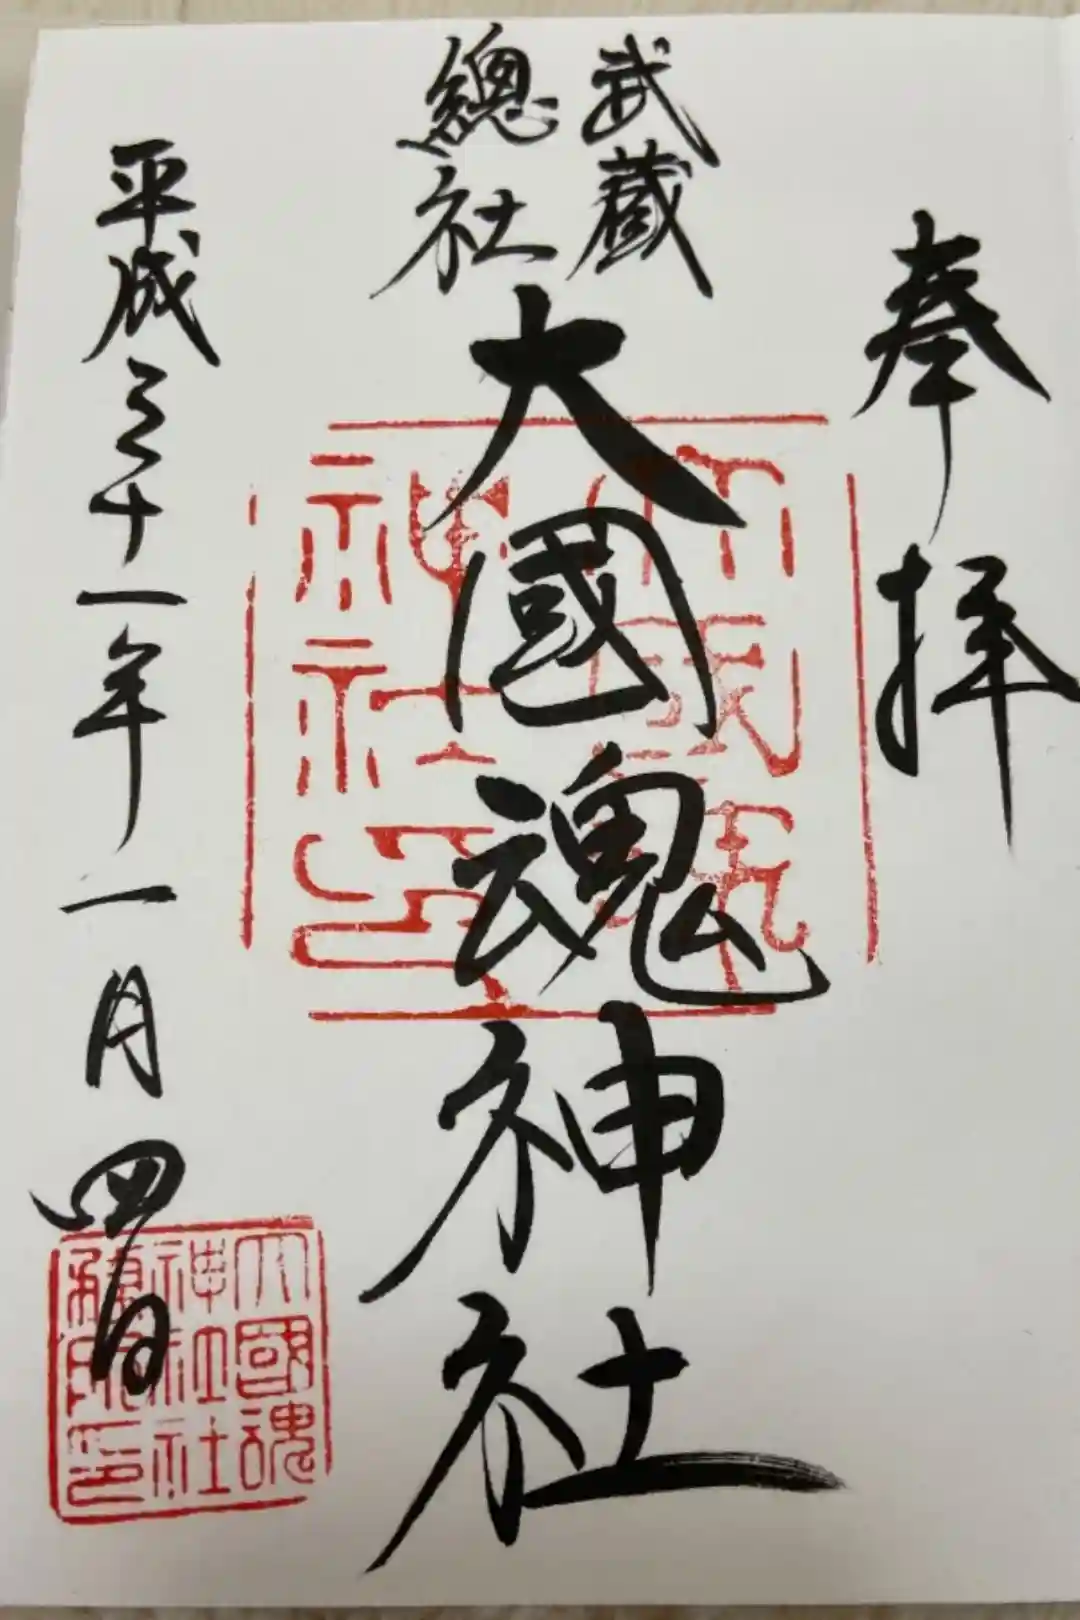 奉拝
武蔵
總社
大國魂神社
平成三十一年一月四日
大國魂
神社社